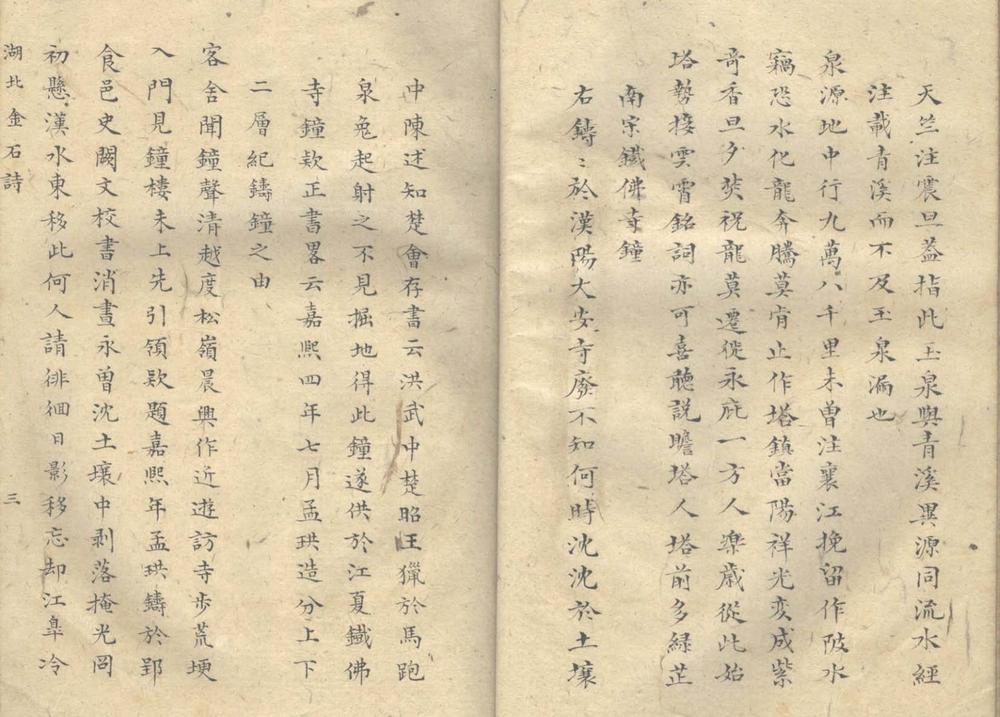 天竺注震旦葢指此玉泉與青溪異源同流水經
注載青溪而不及玉泉漏也
泉源地中行九萬八千里未曽注襄江挽留作陂水
竊恐水化龍奔騰莫肯止作塔鎮當陽祥光变成紫
奇香旦夕焚祝龍莫遷徙永庇一方人樂歲從此始
塔勢接雲霄銘詞亦可喜聽説瞻塔人塔前多緑芷
南宗鐵佛寺鐘
右鑄〻於漢陽大安寺廢不知何時沈沈於土壤
中陳述知楚會存書云洪武中楚昭王獵於馬跑
泉兔起射之不見掘地得此鐘遂供於江夏鐵佛
寺鐘欵正書畧云嘉熙四年七月孟珙造分上下
二層紀鑄鐘之由
客舍聞鐘聲清越度松嶺晨興作近遊訪寺步荒埂
入門見鐘樓未上先引領欵題嘉熙年孟珙鑄於郢
食邑史闕文校書消晝永曽沈土壤中剥落掩光冏
初懸漢水東移此何人請徘徊日影移忘却江臯冷
湖北金石詩
三